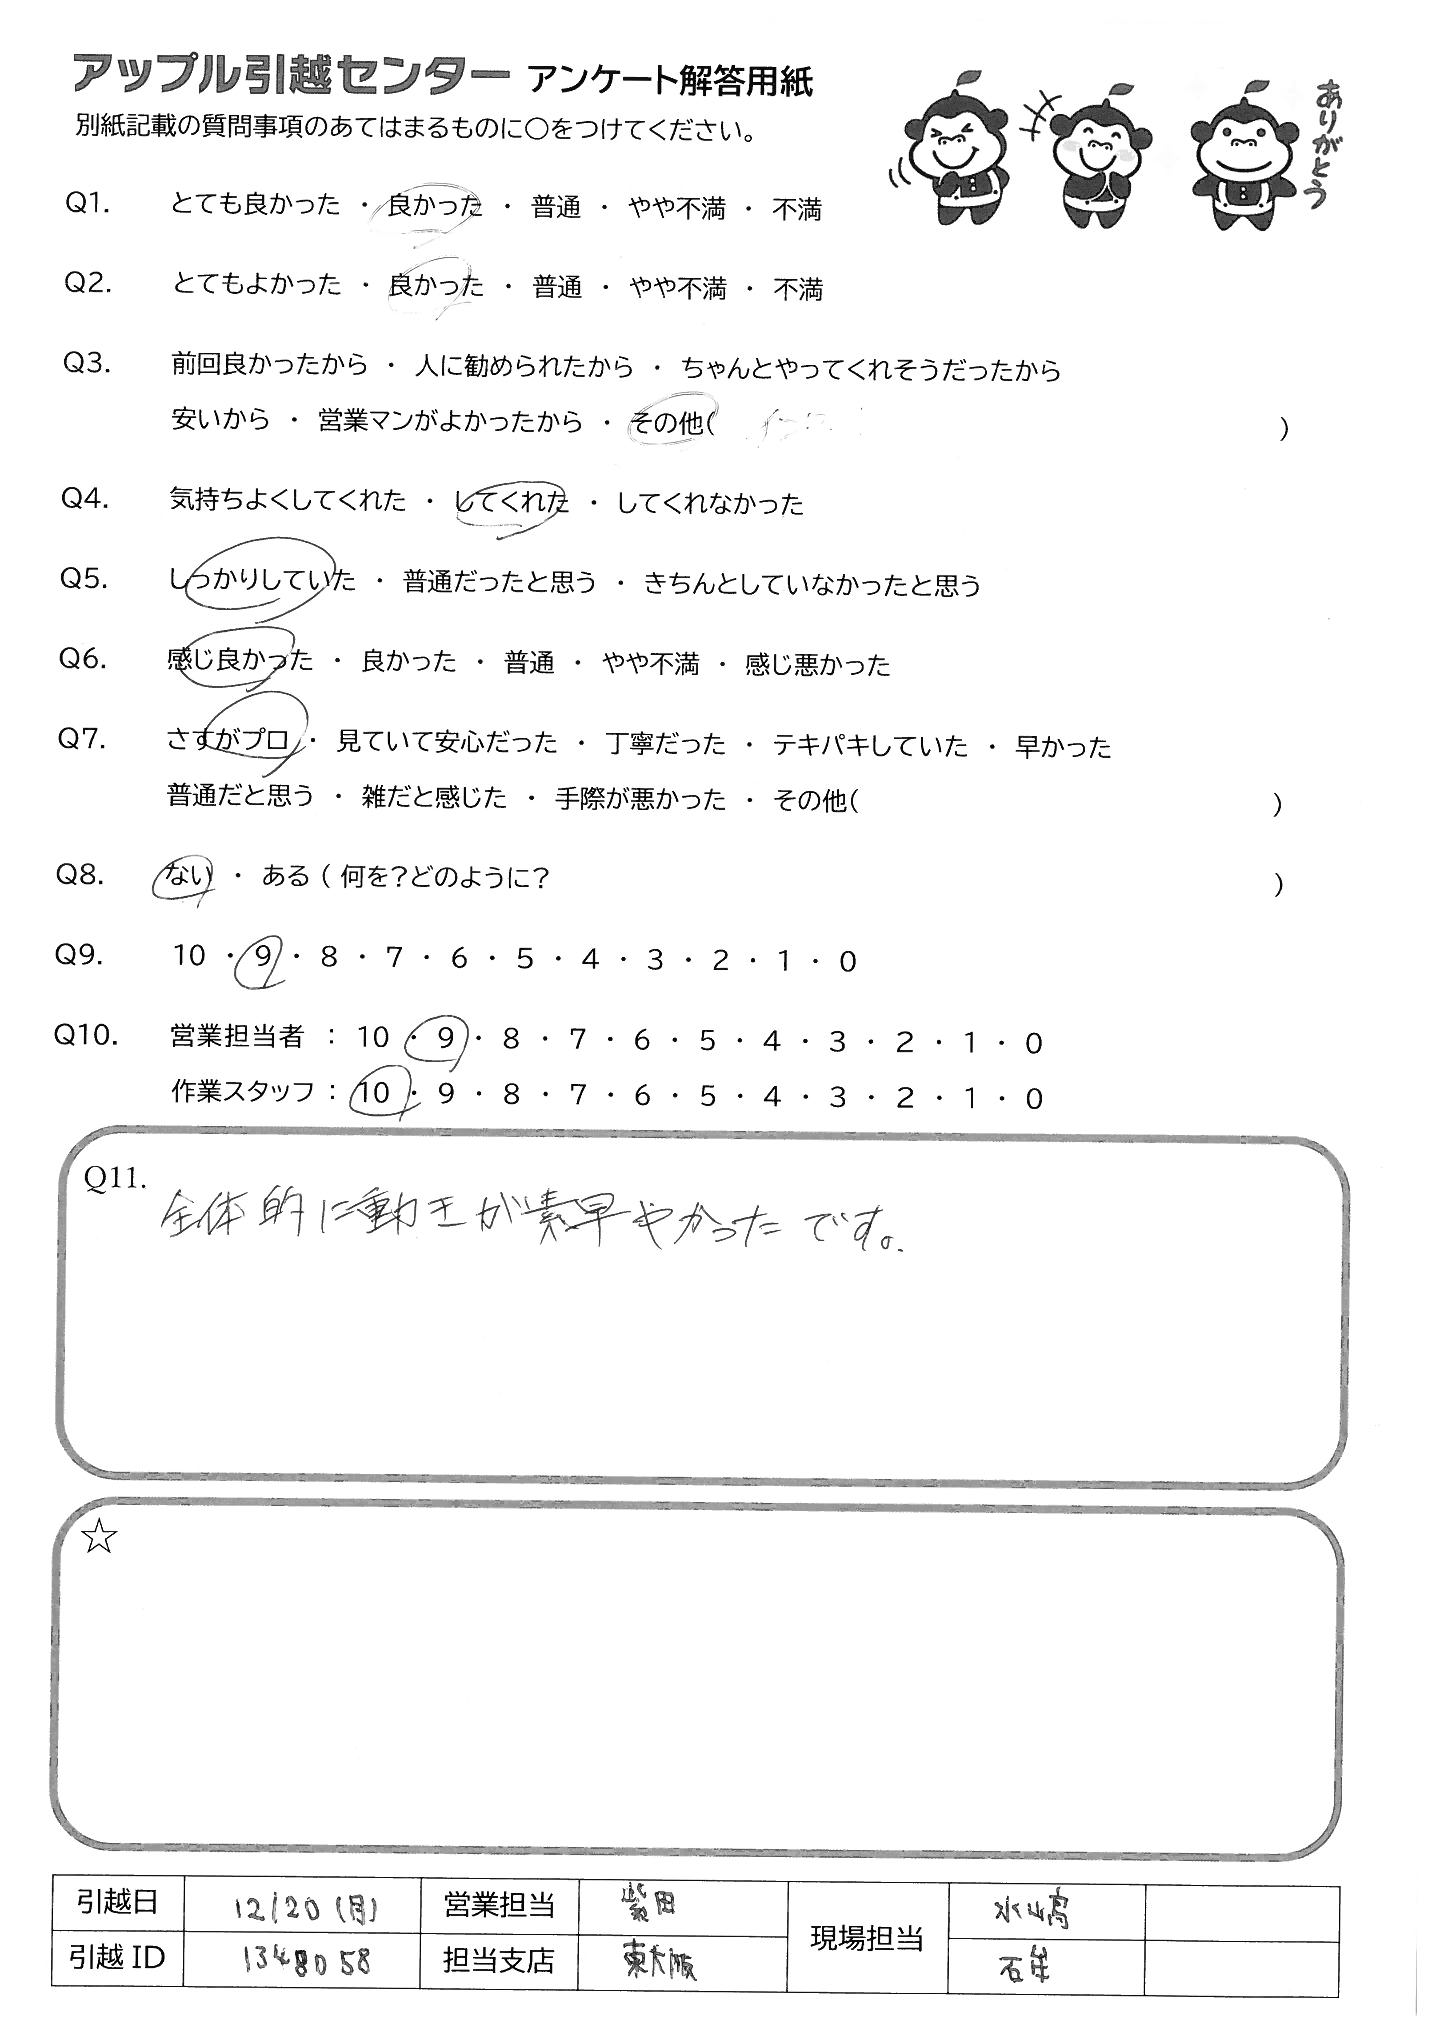 アップル引越センター アンケート解答用紙
別紙記載の質問事項のあてはまるものに〇をつけてください。
ありがとう
Q1. とても良かった ・ 良かった ・ 普通 ・ やや不満 ・ 不満
Q2. とてもよかった ・ 良かった ・ 普通 ・ やや不満 ・ 不満
Q3. 前回良かったから ・ 人に勧められたから ・ ちゃんとやってくれそうだったから
安いから ・ 営業マンがよかったから ・ その他( )
Q4. 気持ちよくしてくれた ・ してくれた ・ してくれなかった
Q5. しっかりしていた ・ 普通だったと思う ・ きちんとしていなかったと思う
Q6. 感じ良かった ・ 良かった ・ 普通 ・ やや不満 ・ 感じ悪かった
Q7. さすがプロ ・ 見ていて安心だった ・ 丁寧だった ・ テキパキしていた ・ 早かった
普通だと思う ・ 雑だと感じた ・ 手際が悪かった ・ その他( )
Q8. ない ・ ある ( 何を?どのように? )
Q9. 10 ・ 9 ・ 8 ・ 7 ・ 6 ・ 5 ・ 4 ・ 3 ・ 2 ・ 1 ・ 0
Q10. 営業担当者 : 10 ・ 9 ・ 8 ・ 7 ・ 6 ・ 5 ・ 4 ・ 3 ・ 2 ・ 1 ・ 0
作業スタッフ : 10 ・ 9 ・ 8 ・ 7 ・ 6 ・ 5 ・ 4 ・ 3 ・ 2 ・ 1 ・ 0
Q11.
全体的に動きが素早やかったです。
☆
引越日 12/20(月) 営業担当 柴田 現場担当
引越ID 1348058 担当支店 東大阪